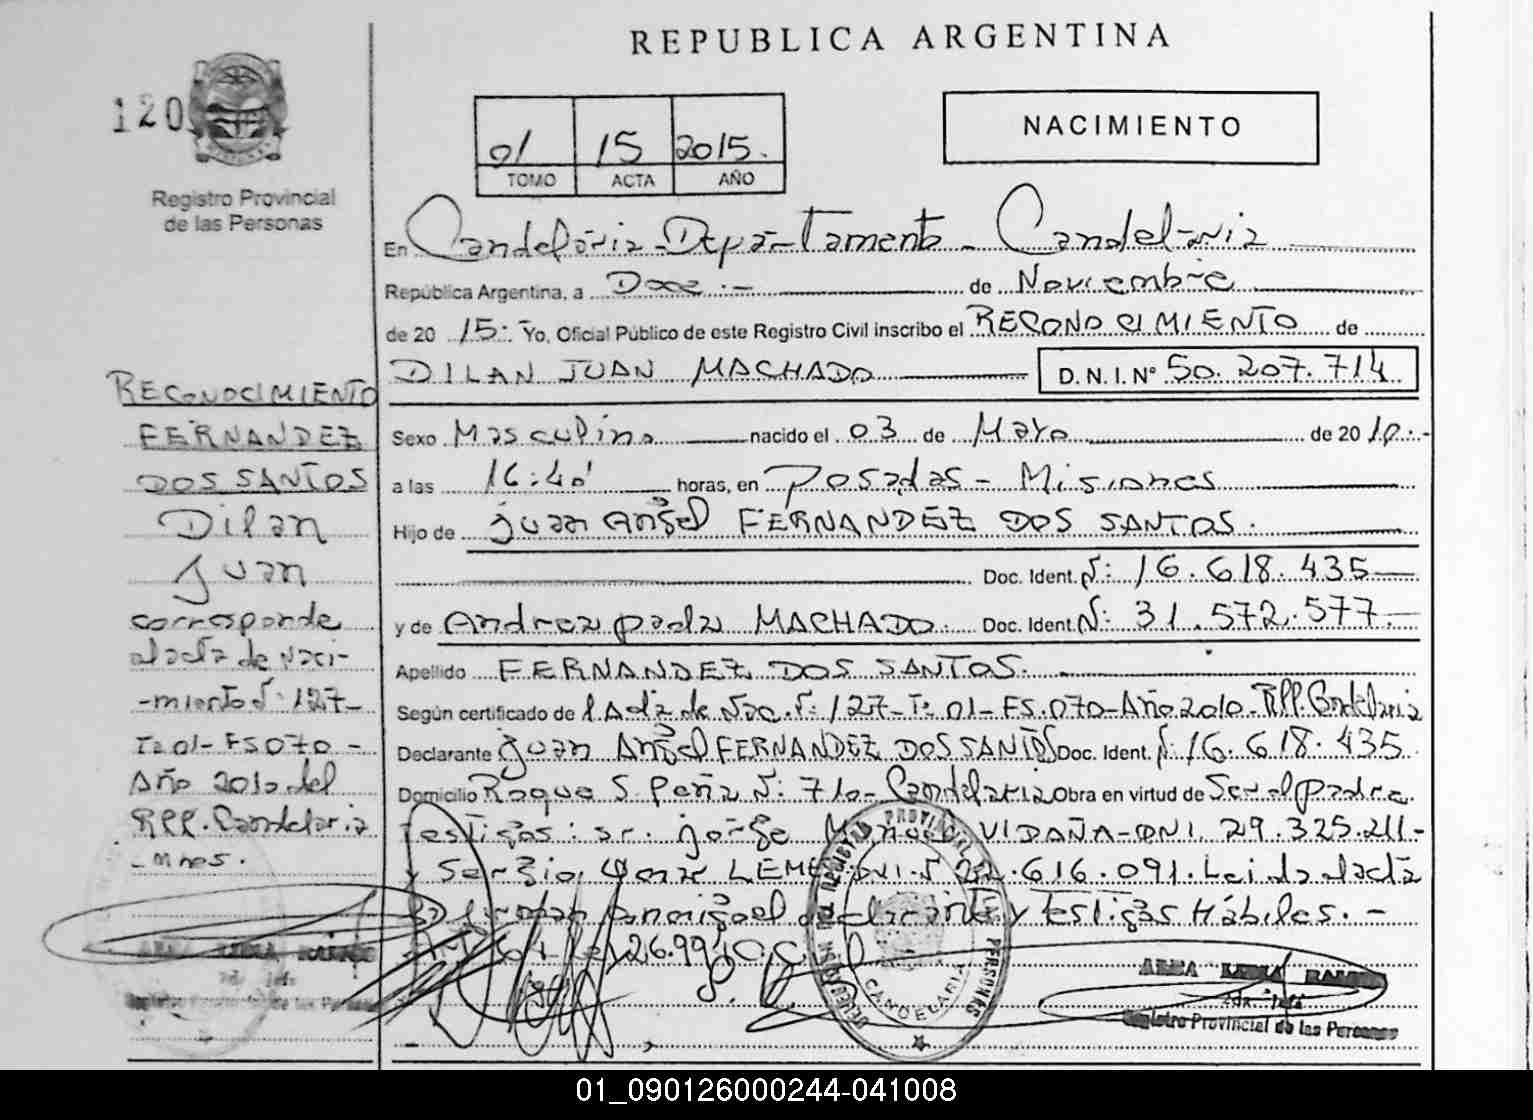 REPUBLICA ARGENTINA
120
Registro Provincial
de las Personas
01 15 2015.
TOMO ACTA AÑO
NACIMIENTO
En Candelaria - Departamento - Candelaria
República Argentina, a Doce.- de Noviembre
de 20 15: Yo, Oficial Público de este Registro Civil inscribo el RECONOCIMIENTO de
DILAN JUAN MACHADO D.N.I. Nº 50.207.714
Sexo Masculino nacido el 03 de Mayo de 20 10.-
a las 16:40' horas, en Posadas - Misiones
Hijo de Juan Angel FERNANDEZ DOS SANTOS.
Doc. Ident. Nº: 16.618.435
y de Andrea paola MACHADO. Doc. Ident. Nº: 31.572.577.
Apellido FERNANDEZ DOS SANTOS.
Según certificado de Acta de Nac. Nº: 127-Tº 01-FS.070-Año 2010-RPP. Candelaria
Declarante Juan Angel FERNANDEZ DOS SANTOS Doc. Ident. Nº 16.618.435
Domicilio Roque S. Peña Nº: 710- Candelaria Obra en virtud de Ser el padre.
Testigos: sr. jorge VIDAÑA-DNI. 29.325.211-
y Sergio Omar LEME DNI. Nº .616.091. Leida el acta
firman conmigo el declarante y testigos Hábiles.-
26.994
RECONOCIMIENTO
FERNANDEZ
DOS SANTOS
Dilan
Juan
corresponde
al acta de Naci-
-miento Nº 127-
Tº 01- FS 070 -
Año 2010 del
RPP. Candelaria
- Mnes.
2da Jefa
Registro Provincial de las Personas
DELEGACION DEL REGISTRO PROVINCIAL DE LAS PERSONAS
CANDELARIA
2da Jefa
Registro Provincial de las Personas
01_090126000244-041008